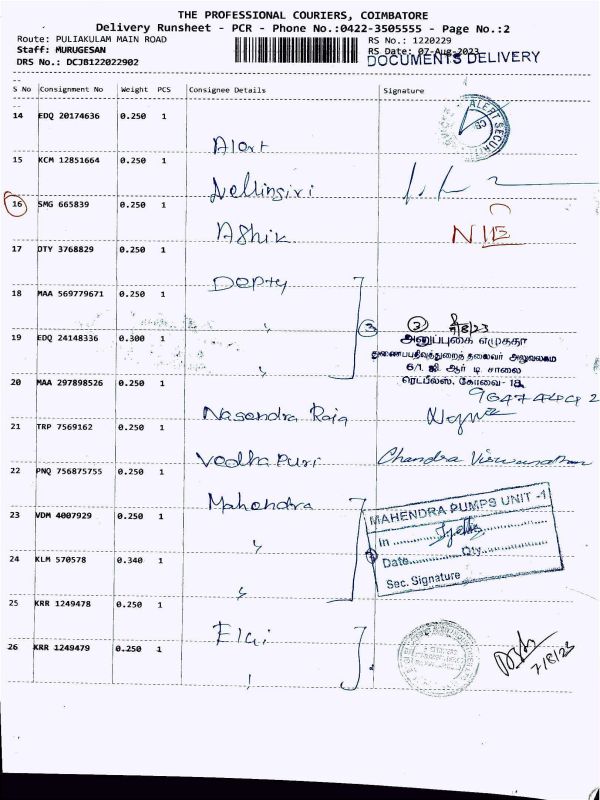 THE PROFESSIONAL COURIERS, COIMBATORE
Delivery Runsheet - PCR - Phone No.:0422-3505555 - Page No.:2
Route: PULIAKULAM MAIN ROAD
RS No.: 1220229
Staff: MURUGESAN
RS Date: 07-Aug-2023
DRS No.: DCJB122022902
DOCUMENTS DELIVERY
S No Consignment No Weight PCS Consignee Details Signature
14 EDQ 20174636 0.250 1
Alert
ALERT SECURIT
15 KCM 12851664 0.250 1
Nellingiri
16 SMG 665839 0.250 1
Ashik
NIE
17 DTY 3768829 0.250 1
Depty
18 MAA 569779671 0.250 1
"
③ ② 7/8/23
19 EDQ 24148336 0.300 1
"
அனுப்புகை எழுத்தர்
துணைப்பதிவுத்துறைத் தலைவர் அலுவலகம்
6/1 ஜி ஆர் டி சாலை
ரெட்பீல்ஸ், கோவை - 18
20 MAA 297898526 0.250 1
Nagendra Raja
21 TRP 7569162 0.250 1
Vedha Puri
Chandra Viswanathan
22 PNQ 756875755 0.250 1
Mahendra
MAHENDRA PUMPS UNIT -1
23 VDM 4007929 0.250 1
"
In
Date Qty
Sec. Signature
24 KLM 570578 0.340 1
"
25 KRR 1249478 0.250 1
Elgi
26 KRR 1249479 0.250 1
"
7/8/23